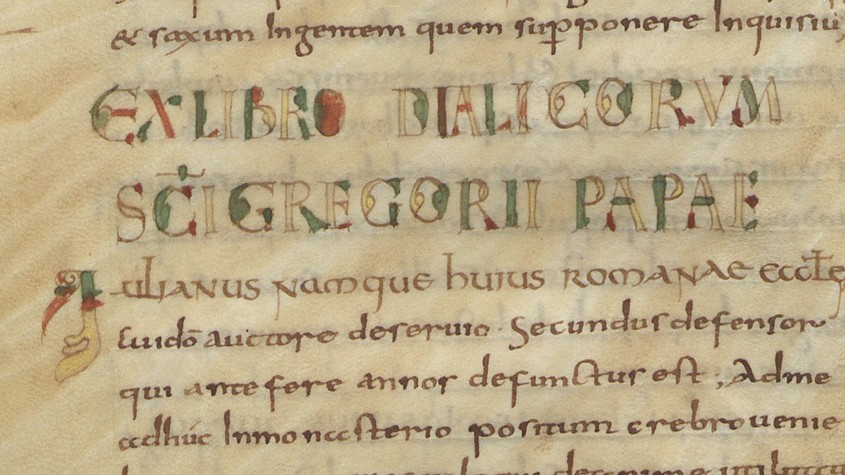 & saxum Ingentem quem supponere Inquisiui
EX LIBRO DIALIGORUM
SC̅I GREGORII PAPAE
IULIANUS NAMQUE huius ROMANAE eccłe
cui dō auctore deseruio. Secundus defensor
qui ante fere annos defunctus est; Ad me
adhuc In monasterio positum crebro uenie